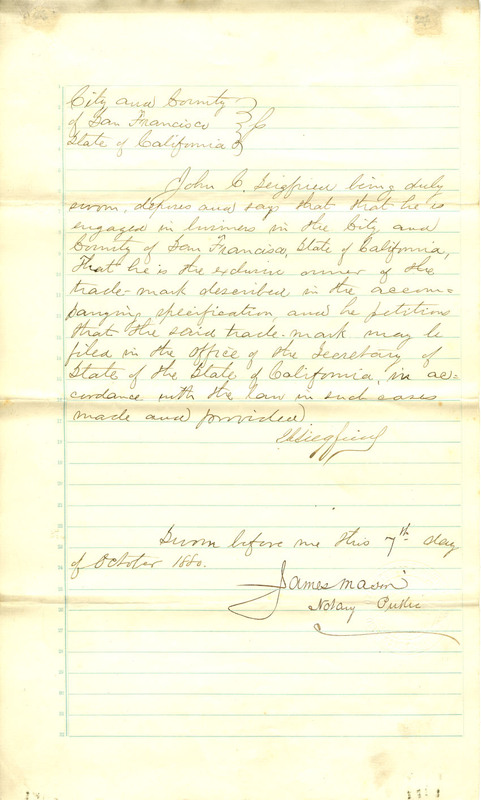 City and County
of San Francisco
State of California
John C. Siegfried being duly
sworn, deposes and says that that he is
engaged in business in the City and
County of San Francisco, State of California,
That he is the exclusive owner of the
trade-mark described in the accom=
panying specification, and he petitions
that the said trade-mark may be
filed in the office of the Secretary of
State of the State of California, in ac=
cordance with the law in such cases
made and provided
Siegfried
Sworn before me this 7th day
of October 1880.
James Mason
Notary Public